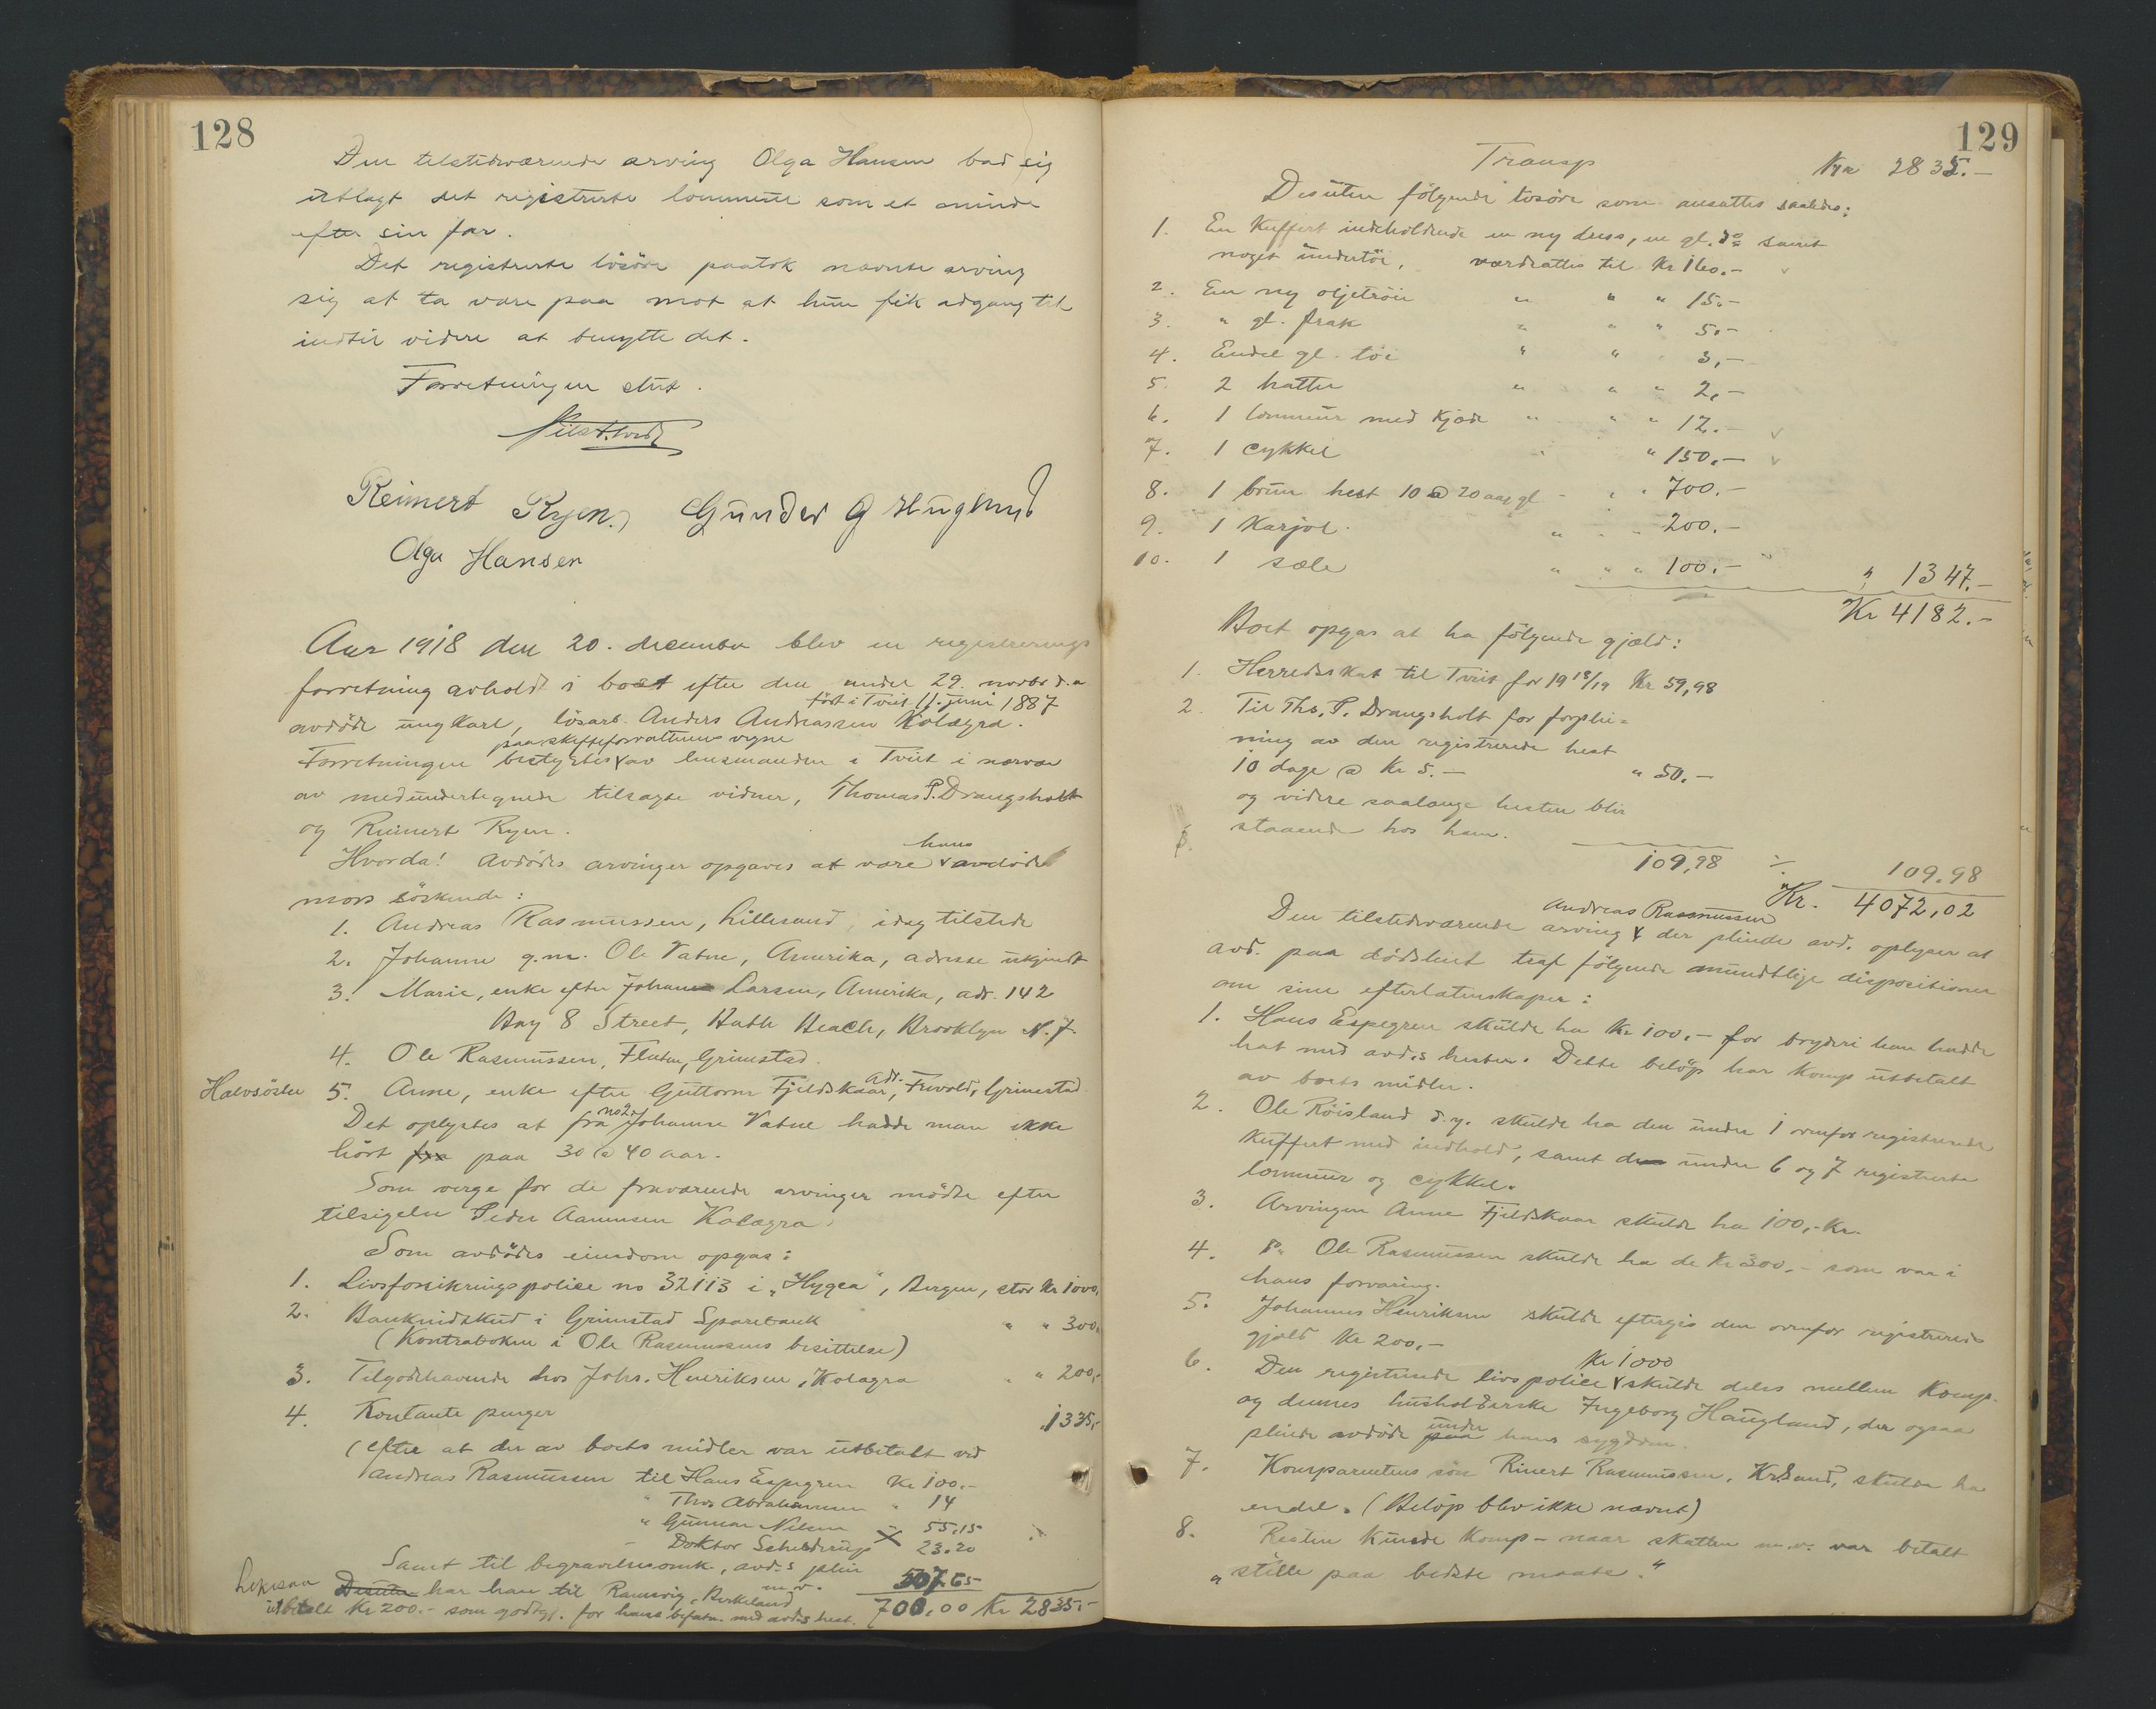 128
Den tilstedværende arving Olga Hansen bad sig
utlagt det registrerte lommeur som et minde
efter sin far.
Det registrerte lösöre paatok nævnte arving
sig at ta vare paa mot at hun fik adgang til
indtil videre at benytte det.
Forretningen slut.
Reinert Ryen. Gunder G Haugland
Olga Hansen
Aar 1918 den 20. december blev en registrerings
forretning avholdt i boet efter den under 29. novbr d.a
født i Tveit 11. juni 1887
avdöde ungkarl, lösarb. Anders Andreassen Kolagra.
paa skifteforvalterens vegne
Forretningen bestyrtes av lensmanden i Tveit i nærvær
av medundertegnede tilsagte vidner, Thomas P. Drangsholt
og Reinert Ryen.
hans
Hvorda! Avdödes arvinger opgaves at være avdöde
mors söskende:
1. Andreas Rasmussen, Lillesand, idag tilstede
2. Johanne g.m. Ole Vatne, Amerika, adresse ukjendt
3. Marie, enke efter Johan Larsen, Amerika, adr. 142
Bay 8 Street, Bath Beach, Brooklyn N.J.
4. Ole Rasmussen, Grimstad.
Halvsöster 5. Anne, enke efter Guttorm Fjeldskaar, adr. Grimstad
Det oplystes at fra no 2. Johanne Vatne hadde man ikke
hört fra paa 30 @ 40 aar.
Som verge for de fraværende arvinger mödte efter
tilsigelse Peder Aanensen Kolagra.
Som avdödes eiendom opgas:
1. Livsforsikringspolice no 32113 i "Hygea", Bergen, stor Kr 1000,
2. Bankindskud i Grimstad Sparebank " " 300,
(Kontraboken i Ole Rasmussens besittelse)
3. Tilgodehavende hos Johs. Henriksen, Kolagra " " 200,-
4. Kontante penger 1335,-
(efter at der av boets midler var utbetalt ved
Andreas Rasmussen til Hans Espegren Kr 100.-
" Thos Abrahamsen " 14
" Gunnar Nilsen " 55,15
- Doktor Schelderup X 23.20
Samt til begravelsesomk., avd.s pleie m.v. 507.65
Likesaa Desuten har han til Ramsvig, Birkeland
utbetalt Kr 200.- som godtgj. for hans befatn. med avd.s hest. 700.00 Kr 2835.-
129
Transp Kr 2835.-
Desuten fölgende lösöre som ansattes saaledes:
1. En Kuffert indeholdende en ny dress, en gl. do samt
noget undertöi, værdsattes til Kr 160.-
2. En ny oljetröie " " " 15.-
3. " gl. frak " " " 5.-
4. Endel gl. töi " " 3,-
5. 2 hatter " " " 2,-
6. 1 lommeur med kjede " " " 12.-
7. 1 cykkel " " 150.-
8. 1 brun hest 10 @ 20 aar gl - " " 700.-
9. 1 Karjol " " " 200.-
10. 1 sæle " " " 100.- " 1347.-
Kr 4182.-
Boet opgas at ha fölgende gjæld:
1. Herredsskat til Tveit for 1918/19 Kr 59,98
2. Til Ths. P. Drangsholt for forplei=
ning av den registrerede hest
10 dage @ Kr 5.- " 50.-
og videre saalænge hesten blir
staaende hos ham.
3.
109,98 ÷ 109.98
Kr. 4072,02
Andreas Rasmussen
Den tilstedværende arving der pleiede avd. oplyser at
avd. paa dödsleiet traf fölgende mundtlige dispositioner
om sine efterlatenskaper:
1. Hans Espegren skulde ha Kr 100.- for bryderi han hadde
hat med avd.s hester. Dette belöp har Komp utbetalt
av boets midler.
2. Ole Röisland d.y. skulde ha den under 1 ovenfor registrerede
Kuffert med indhold, samt den under 6 og 7 registrerte
lommeur og cykkel.
3. Arvingen Anne Fjeldskaar skulde ha 100,- Kr.
4. Do Ole Rasmussen skulde ha de Kr 300.- som var i
hans forvaring.
5. Johannes Henriksen skulde eftergis den ovenfor registrerede
gjæld Kr 200,-
Kr 1000
6. Den registrerede livspolice skulde deles mellem Komp.
og dennes husholderske Ingeborg Haugland, der ogsaa
pleiede avdöde paa under hans sygdom.
7. Komparentens sön Reinert Rasmussen, Kr.sand, skulde ha
endel. (Belöp blev ikke nævnt)
8. Resten kunde Komp - naar skatten m.v. var betalt
"stille paa bedste maate."